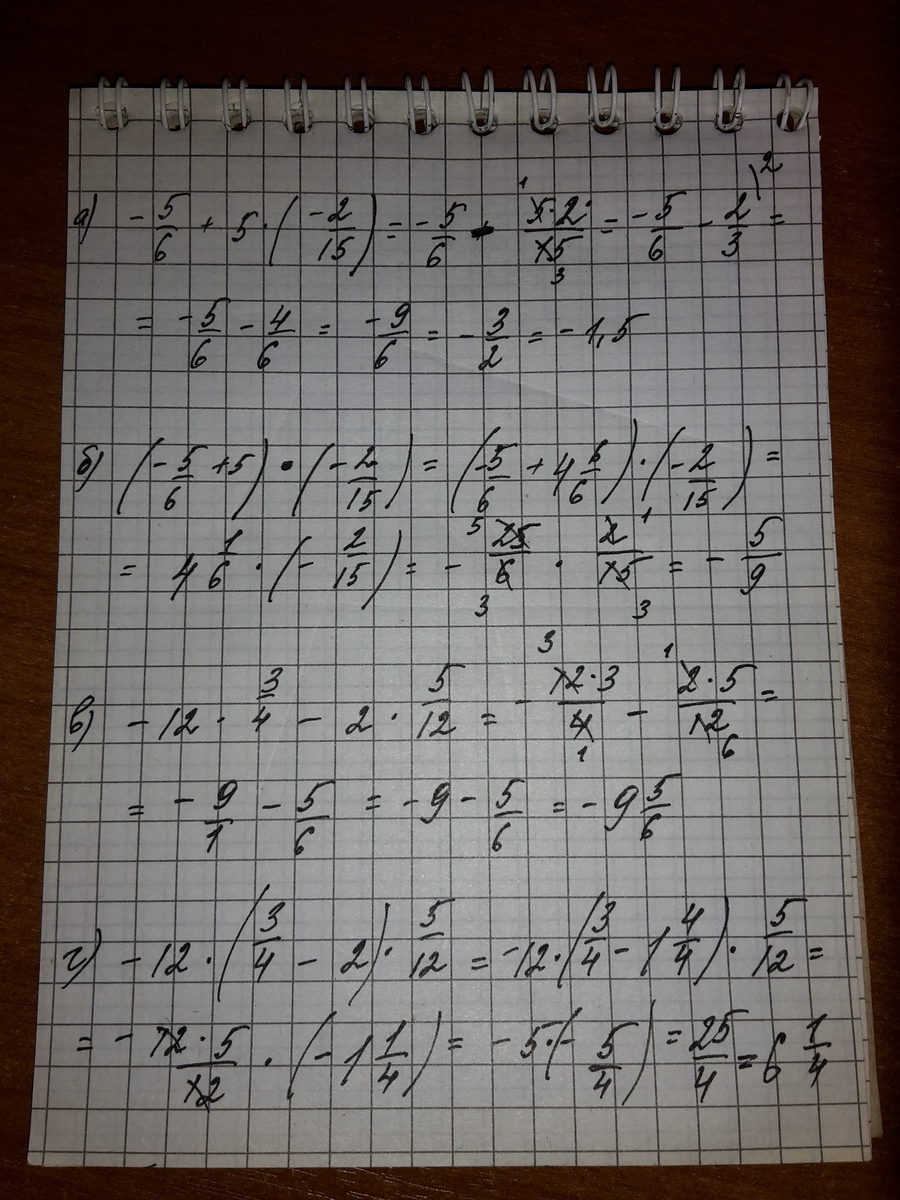 а) -5/6 + 5·(-2/15) = -5/6 - 5·2/15 = -5/6 - 2/3 =
= -5/6 - 4/6 = -9/6 = -3/2 = -1,5
б) (-5/6 + 5)·(-2/15) = (-5/6 + 4 6/6)·(-2/15) =
= 4 1/6·(-2/15) = - 25/6 · 2/15 = - 5/9
в) -12 · 3/4 - 2 · 5/12 = - 12·3/4 - 2·5/12 =
= -9/1 - 5/6 = -9 - 5/6 = -9 5/6
г) -12·(3/4 - 2)·5/12 = -12·(3/4 - 1 4/4)·5/12 =
= - 12·5/12 · (-1 1/4) = -5·(-5/4) = 25/4 = 6 1/4